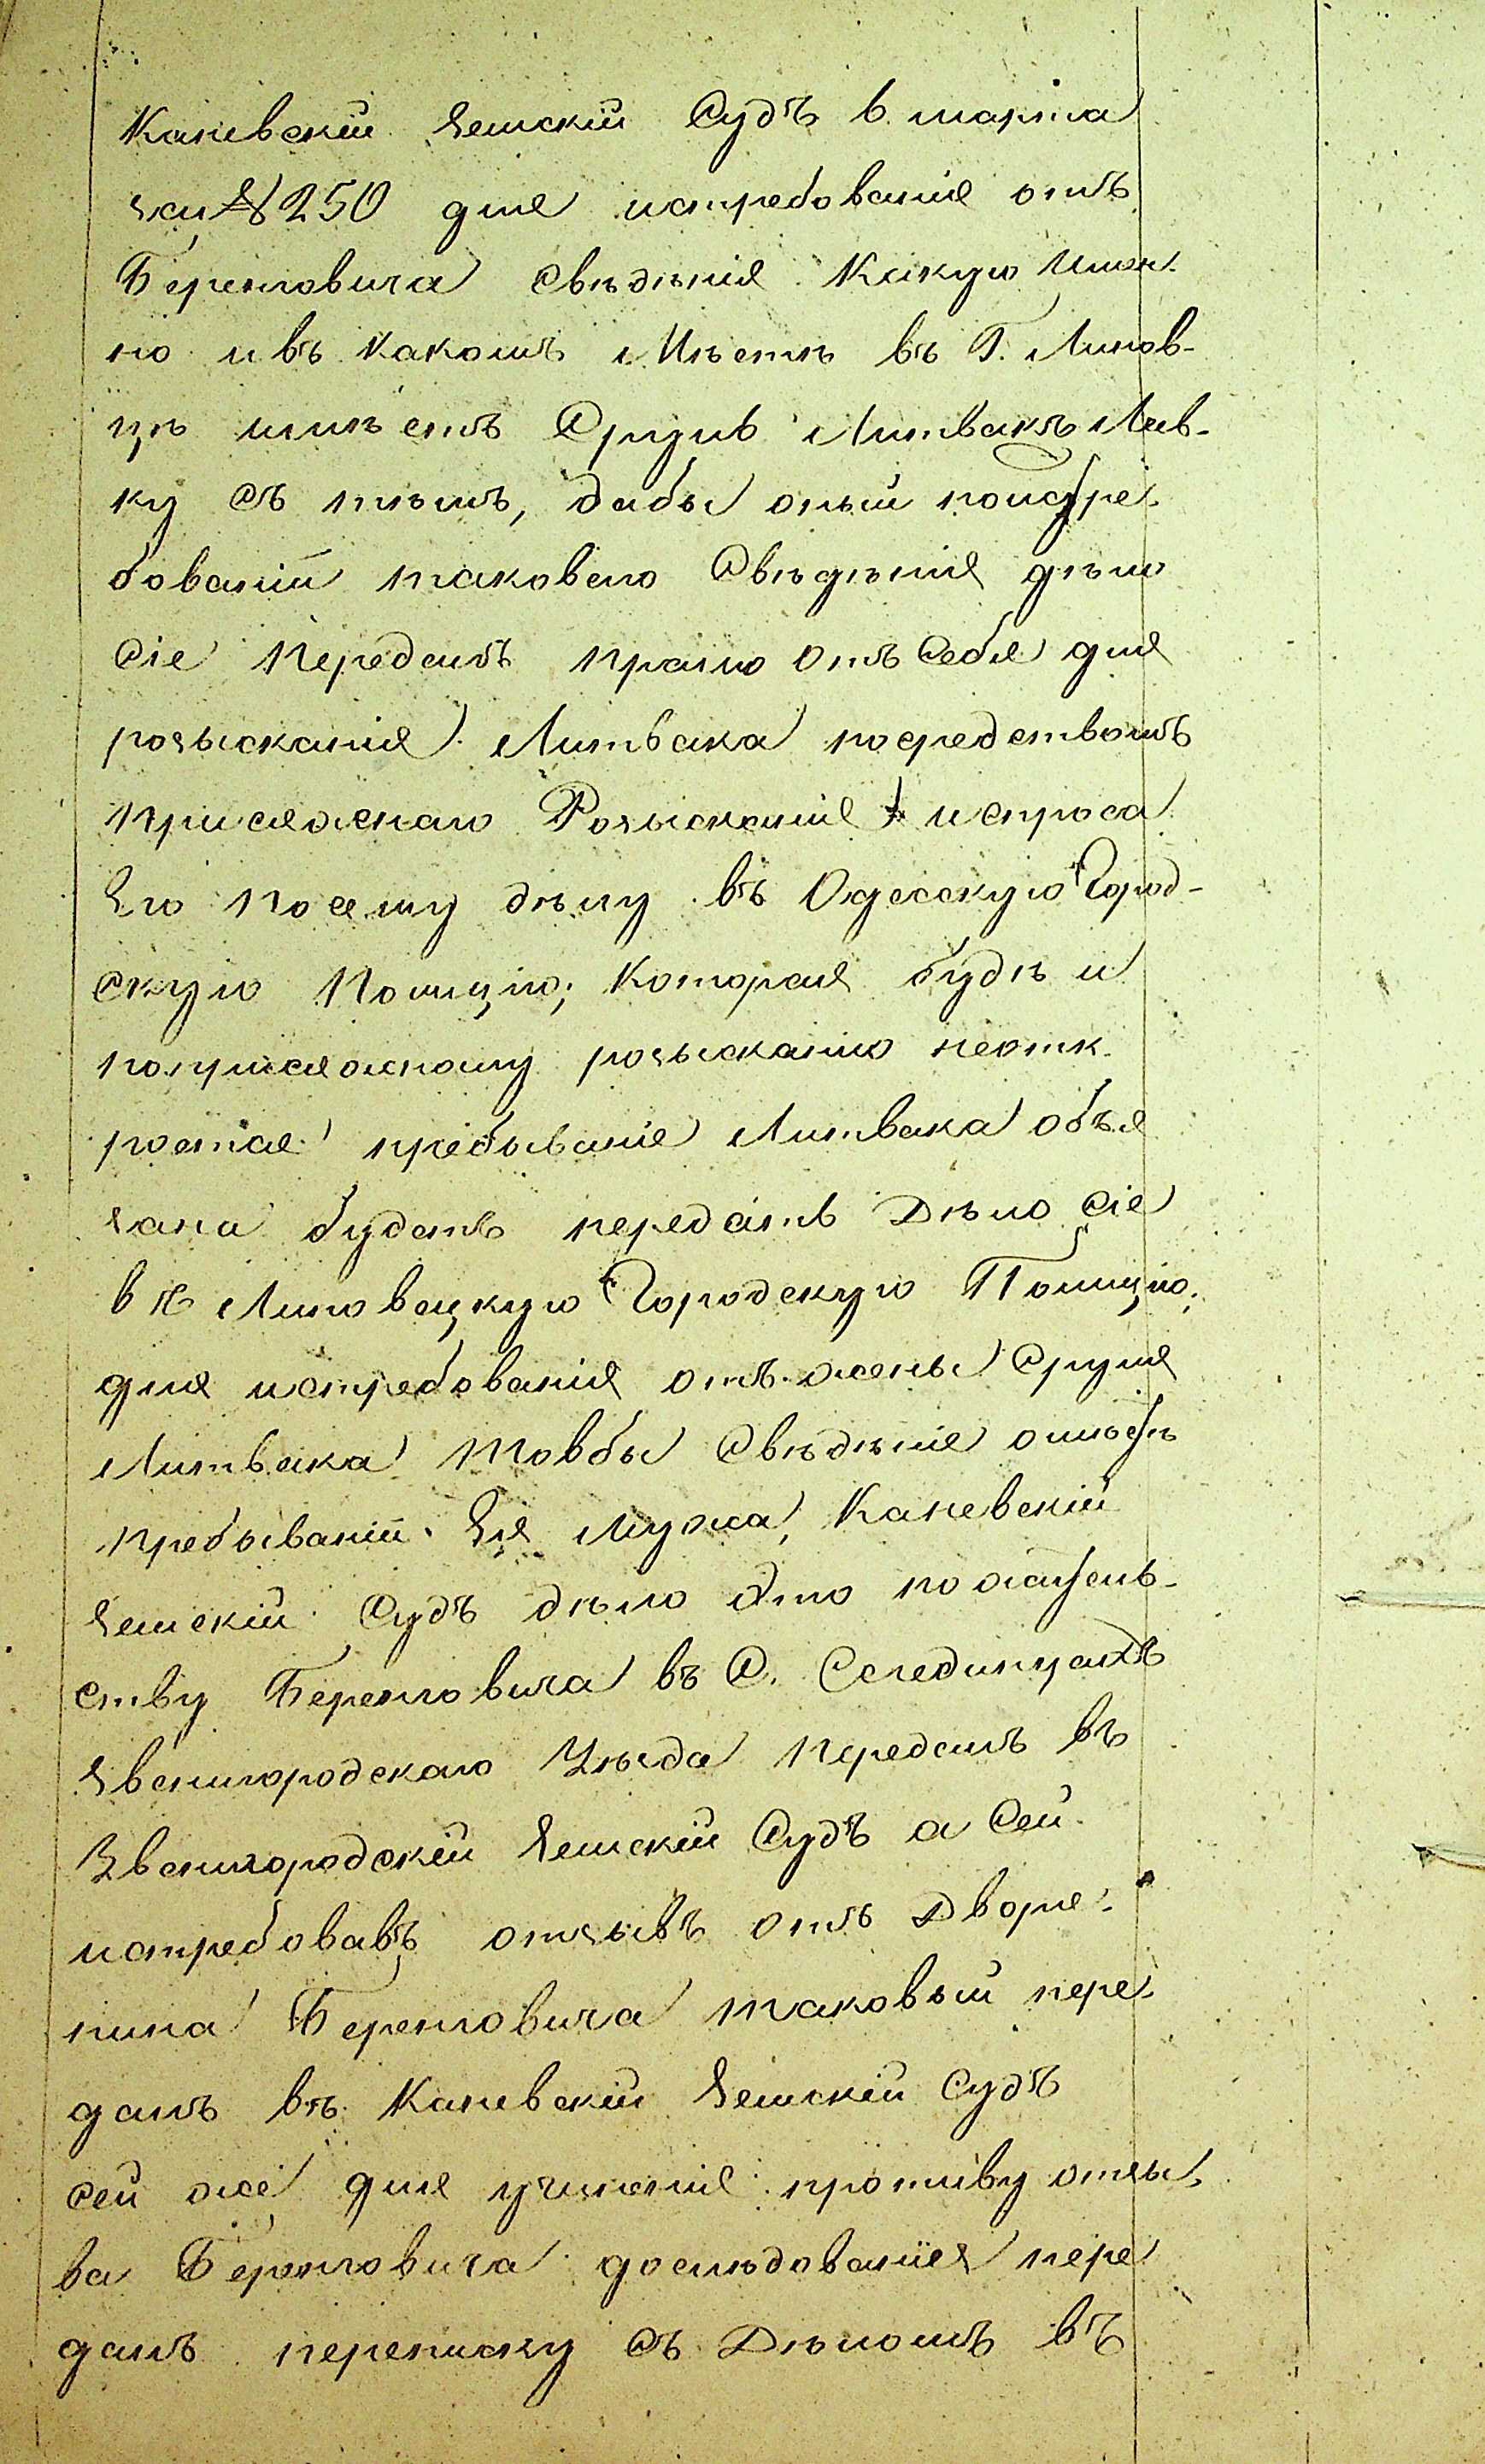 Каневскій Земскій Судъ 6. марта
за №250 для истребованія отъ
Беренговича Свѣдѣнія Какую Имен-
но и въ какомъ Мѣстѣ въ Г. Липов-
цѣ имѣетъ Сруль Литвакъ Лав-
ку Съ тѣмъ, дабы оный поистре-
бованіи таковаго Свѣдѣнія дѣло
Сіе Передалъ прямо Отъ Себя для
розысканія Литвака посредствомъ
присяжнаго Розысканія и спроса
Его по сему дѣлу въ Одесскую Город-
скую Полицію; Которая будѣ и
поприсяжному розысканію неотк-
роется пребываніе Литвака объя
зана будетъ передать Дѣло Сіе
въ Липовецкую Городскую Полицію;
для истребованія отъ жены Сруля
Литвака Товбы Свѣдѣніе омѣстѣ
пребываніи Ея Мужа, Каневскій
Земскій Судъ дѣло Это по жатель-
ству Беренговича въ С. Селединцахъ
Звенигородскаго Уѣзда Передалъ въ
Звенигородскій Земскій Судъ а Сей
истребовавъ отзывъ отъ Дворя-
нина Беренговича таковый пере
далъ въ Каневскій Земскій Судъ
сей же для учиненія противу отзы-
ва Беренговича дослѣдованія пере
далъ переписку Съ Дѣломъ въ